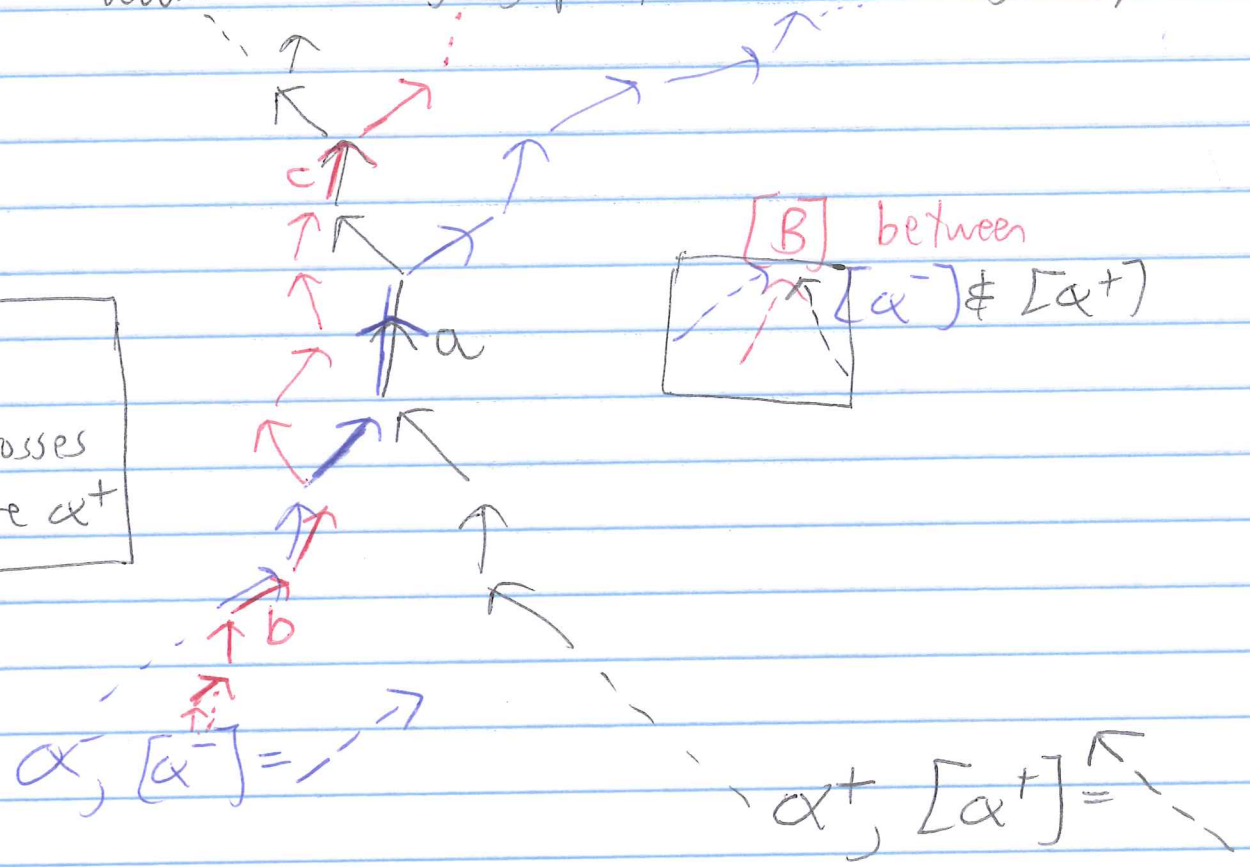 c
[B] between
[α⁻] & [α⁺]
a
osses
e α⁺
b
α⁻, [α⁻] =
α⁺, [α⁺] =